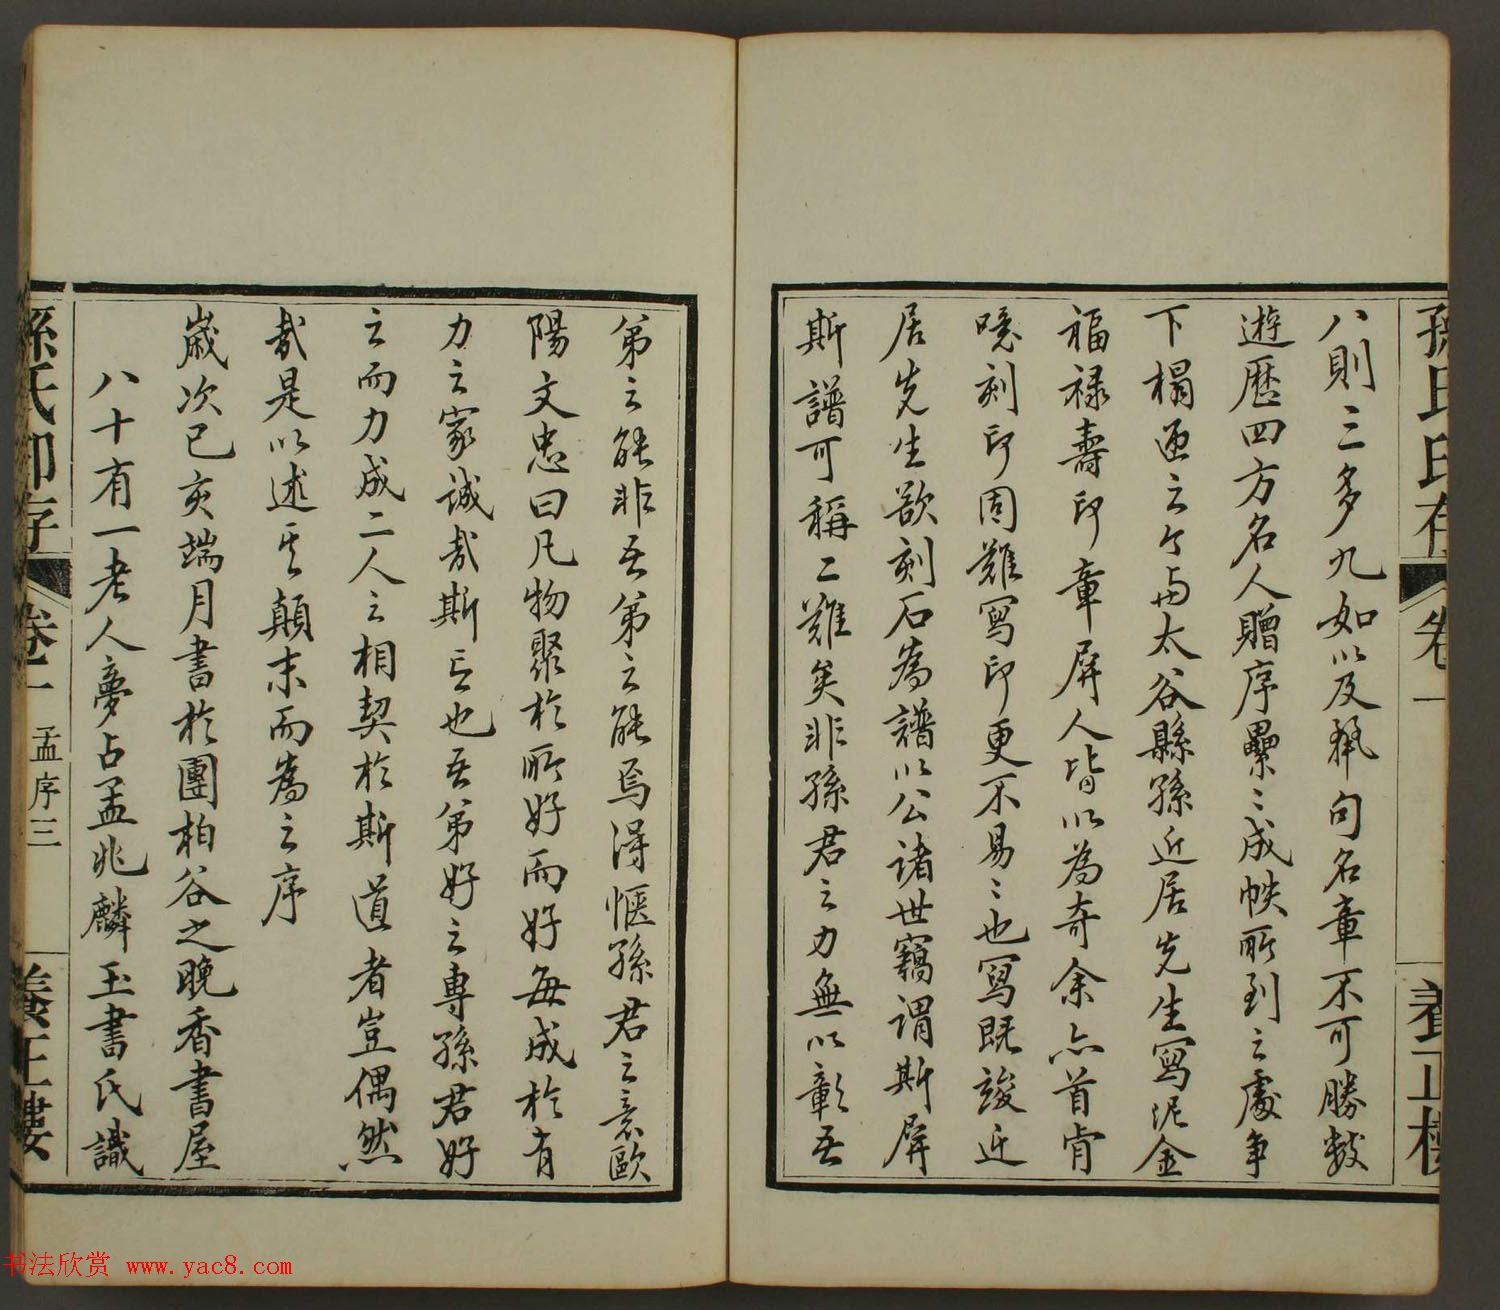 孫氏印存
卷一
養正樓
八則三多九如以及、句名章不可勝數
遊歷四方名人贈序纍〻成帙所到之處争
下榻迎之今与太谷縣孫近居先生寫泥金
福禄壽印章屏人皆以為奇余亦首肯
噫刻印固難寫印更不易〻也寫既竣近
居先生欲刻石為譜以公諸世竊謂斯屏
斯譜可稱二難矣非孫君之力無以彰吾
弟之能非吾弟之能烏得愜孫君之意歐
陽文忠曰凡物聚於所好而好每成於有
力之家誠哉斯言也吾弟好之專孫君好
之而力成二人之相契於斯道者豈偶然
哉是以述其顛末而為之序
歲次己亥端月書於團柏谷之晚香書屋
八十有一老人夢占孟兆麟玉書氏識
孫氏印存
卷一
孟序三
養正樓
书法欣赏 www.yac8.com